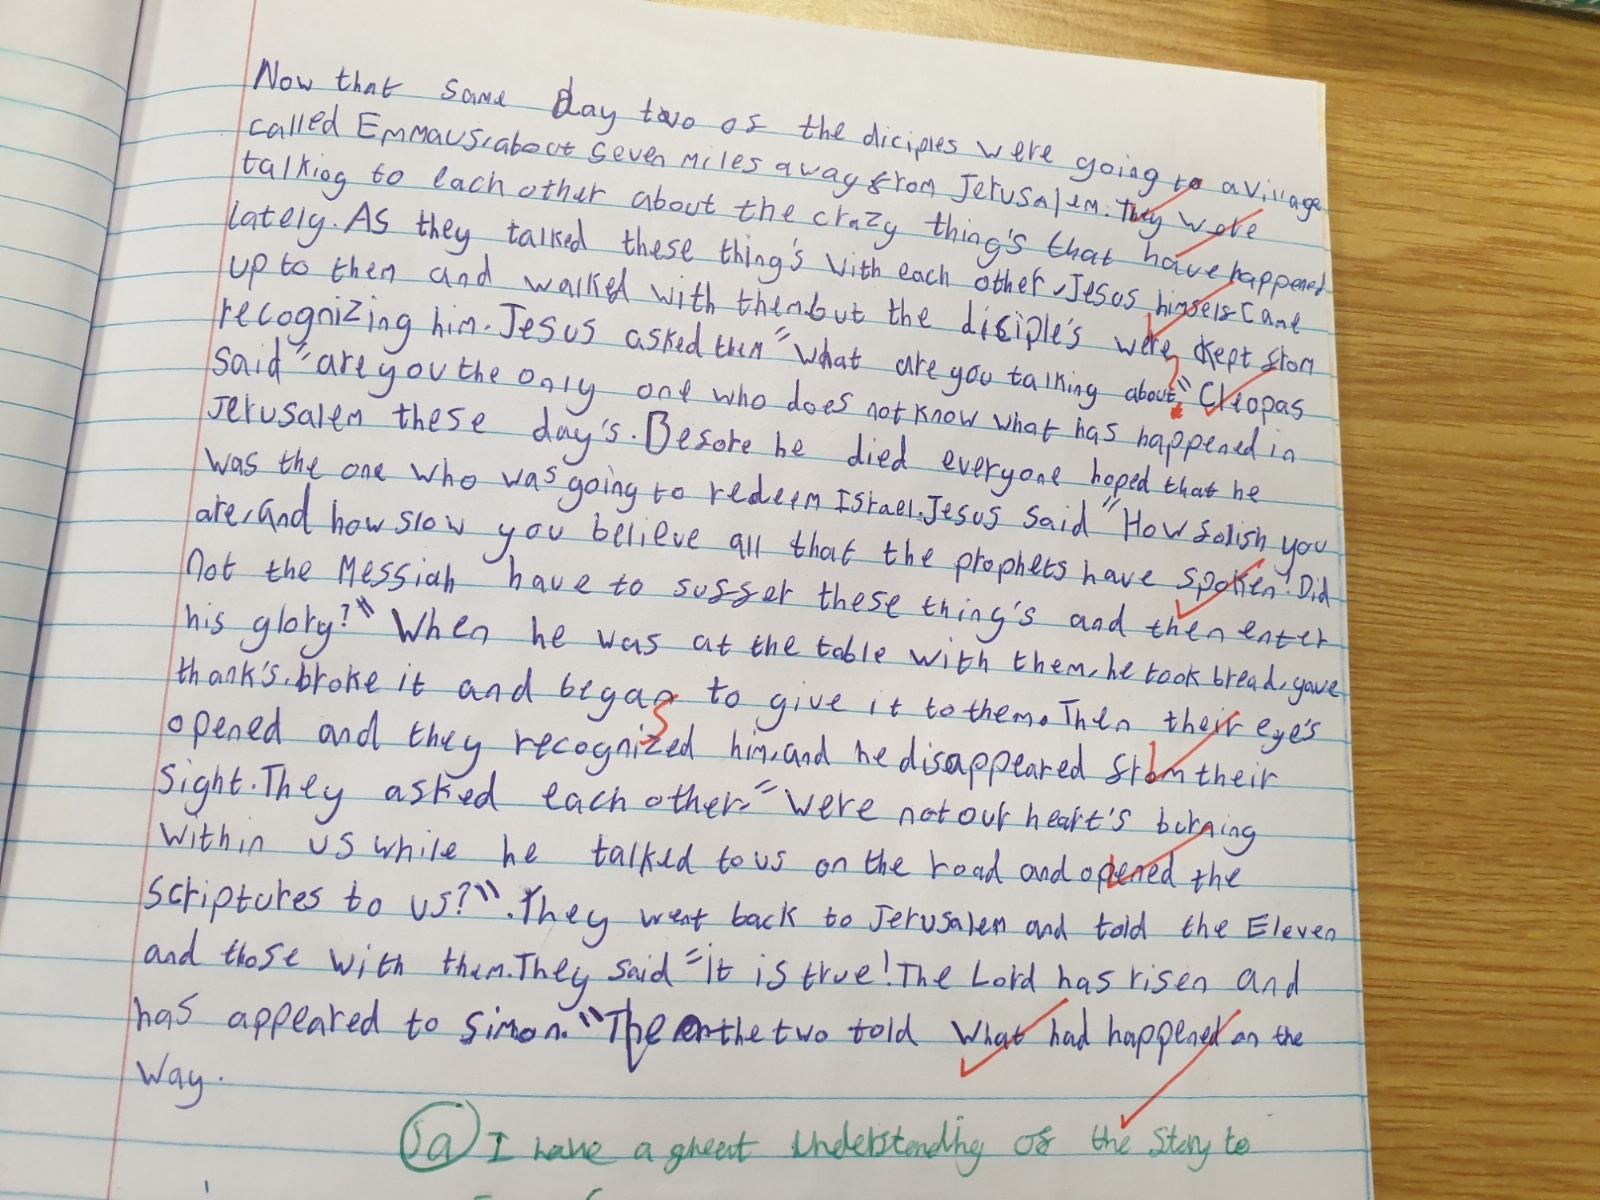 Now that same day two of the diciples were going to a village
called Emmaus, about seven miles away from Jerusalem. They were
talking to each other about the crazy thing's that have happened
lately. As they talked these thing's vith each other, Jesus himself came
up to them and walked with them but the diciple's were kept from
recognizing him. Jesus asked them "what are you talking about?" Cleopas
said "are you the only one who does not know what has happened in
Jerusalem these day's. Before he died everyone hoped that he
was the one who was going to redeem Israel. Jesus said "How folish you
are, and how slow you believe all that the prophets have spoken! Did
not the Messiah have to suffer these thing's and then enter
his glory?" When he was at the table with them, he took bread, gave
thank's, broke it and began to give it to them. Then their eye's
opened and they recognized him, and he disappeared from their
sight. They asked each other, "were not our heart's burning
within us while he talked to us on the road and opened the
scriptures to us?". They went back to Jerusalem and told the Eleven
and those with them. They said "it is true! The Lord has risen and
has appeared to simon." The the two told what had happened on the
way.
5a I have a great understanding of the story to